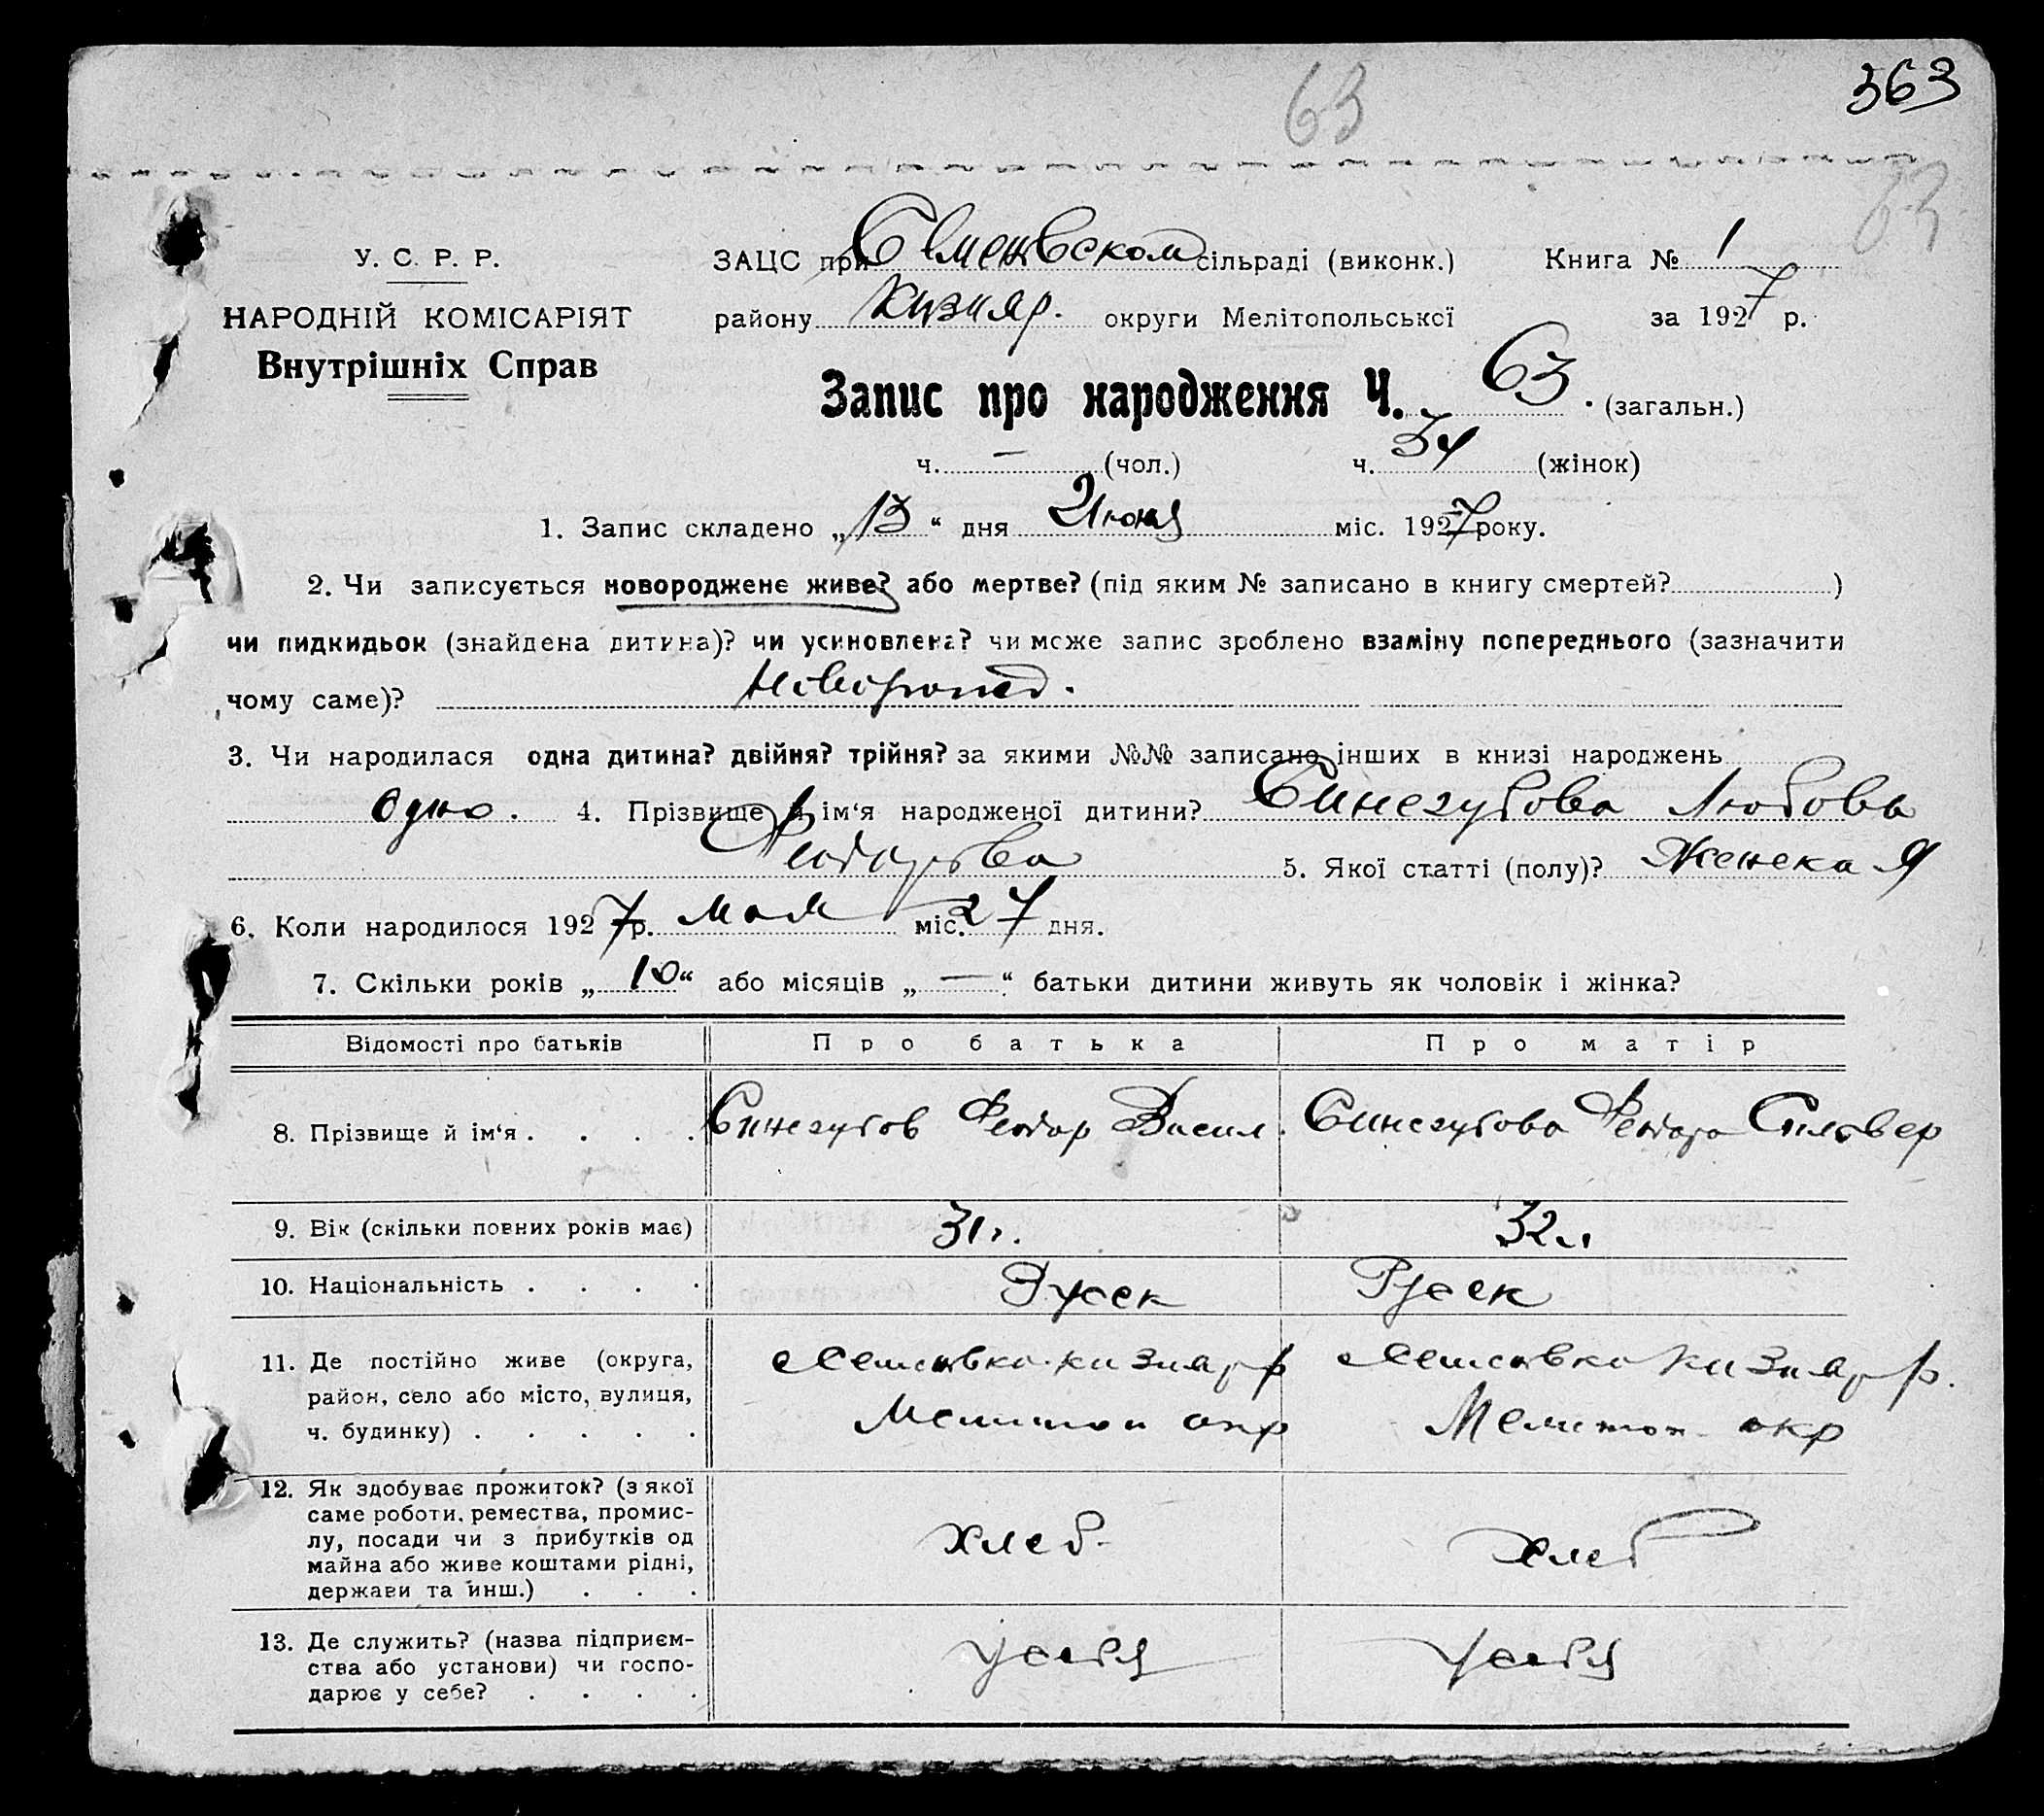 63
363
63
У. С. Р. Р.
НАРОДНІЙ КОМІСАРІЯТ
Внутрішніх Справ
ЗАЦС при Семеновском сільраді (виконк.) Книга № 1
району Кизияр. округи Мелітопольської за 1927 р.
Запис про народження Ч. 63. (загальн.)
ч. — (чол.) ч. 34 (жінок)
1. Запис складено „13“ дня Июня міс. 1927 року.
2. Чи записується новороджене живе? або мертве? (під яким № записано в книгу смертей? )
чи пидкидьок (знайдена дитина)? чи усиновлена? чи може запис зроблено взаміну попереднього (зазначити
чому саме)? Неворожд.
3. Чи народилася одна дитина? двійня? трійня? за якими №№ записано інших в книзі народжень
Одно. 4. Прізвище й ім‘я народженої дитини? Синегубова Любовь
Феодорова 5. Якої статті (полу)? Женская
6. Коли народилося 1927 р. мая міс. 27 дня.
7. Скільки років „10“ або місяців „—“ батьки дитини живуть як чоловік і жінка?
Відомості про батьків Про батька Про матір
8. Прізвище й ім‘я . . . . Синегубов Феодор Васил. Синегубова Феодора Сильвер
9. Вік (скільки повних років має) 31 г. 32 л.
10. Національність . . . . Русск Русск
11. Де постійно живе (округа, Семеновка Кизияр р Семеновка Кизияр р.
район, село або місто, вулиця, Мелитоп окр Мелитоп. окр
ч. будинку) . . . . .
12. Як здобуває прожиток? (з якої
саме роботи, ремества, промис-
лу, посади чи з прибутків од Хлеб. Хлеб
майна або живе коштами рідні,
держави та инш.) . . .
13. Де служить? (назва підприєм- У себя У себя
ства або установи) чи госпо-
дарює у себе? . . . .